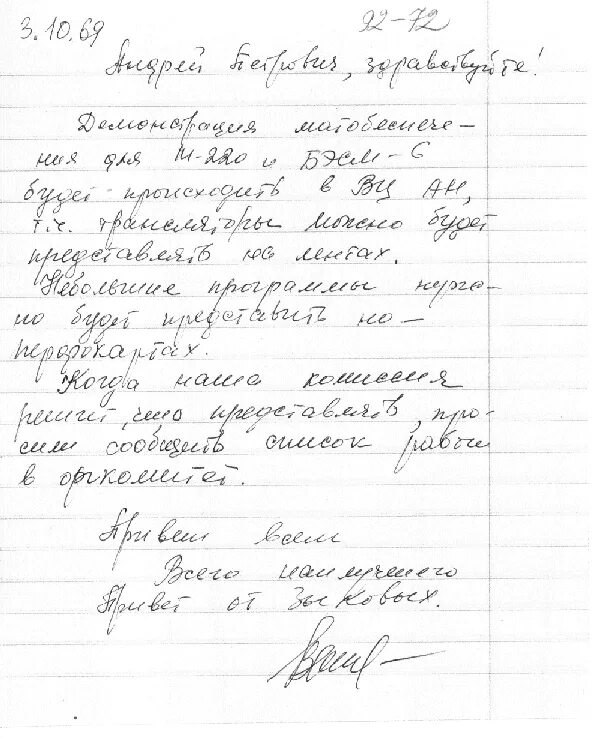 3.10.69
22-72
Андрей Петрович, здравствуйте!
Демонстрация матобеспече-
ния для М-220 и БЭСМ-6
будет происходить в ВЦ АН,
т.ч. трансляторы можно будет
представлять на лентах.
Небольшие программы
но будет представить на
перфокартах.
Когда наша комиссия
решит, что представлять, про-
сим сообщить список работ
в оргкомитет.
Привет всем
Всего наилучшего
Привет от Зыковых.